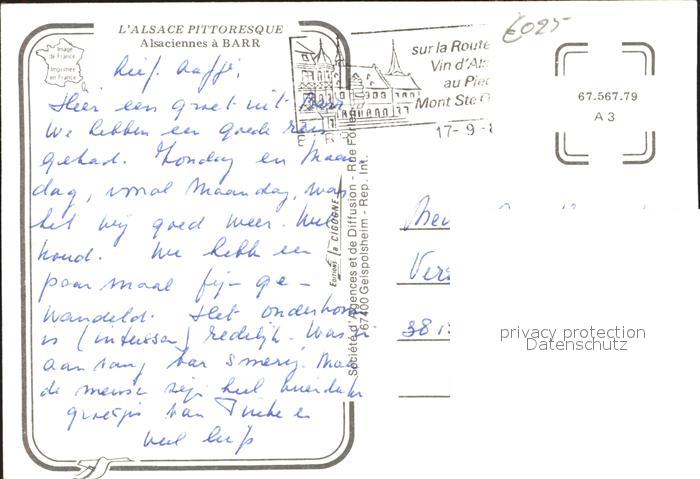 L'ALSACE PITTORESQUE
Alsaciennes à BARR
Image de France
Imprimée en France
Hier een groet uit Barr
We hebben een goede reis
gehad. Zondag en Maan
dag, vooral Maandag, was
het vrij goed weer. Wel
koud. We hebben een
paar maal fijn ge-
wandeld. Het onderkom
is (intussen) redelijk. Was in
aanvang
de mensen zijn heel
groetjes van
veel liefs
EDITIONS la CIGOGNE
Société d'Agences et de Diffusion - Rue
67400 Geispolsheim - Rep. Int.
sur la Route
Vin d'Als
au Pied
Mont Ste O
17-9-8
€025
67.567.79
A 3
Mev
Vers
38
privacy protection
Datenschutz